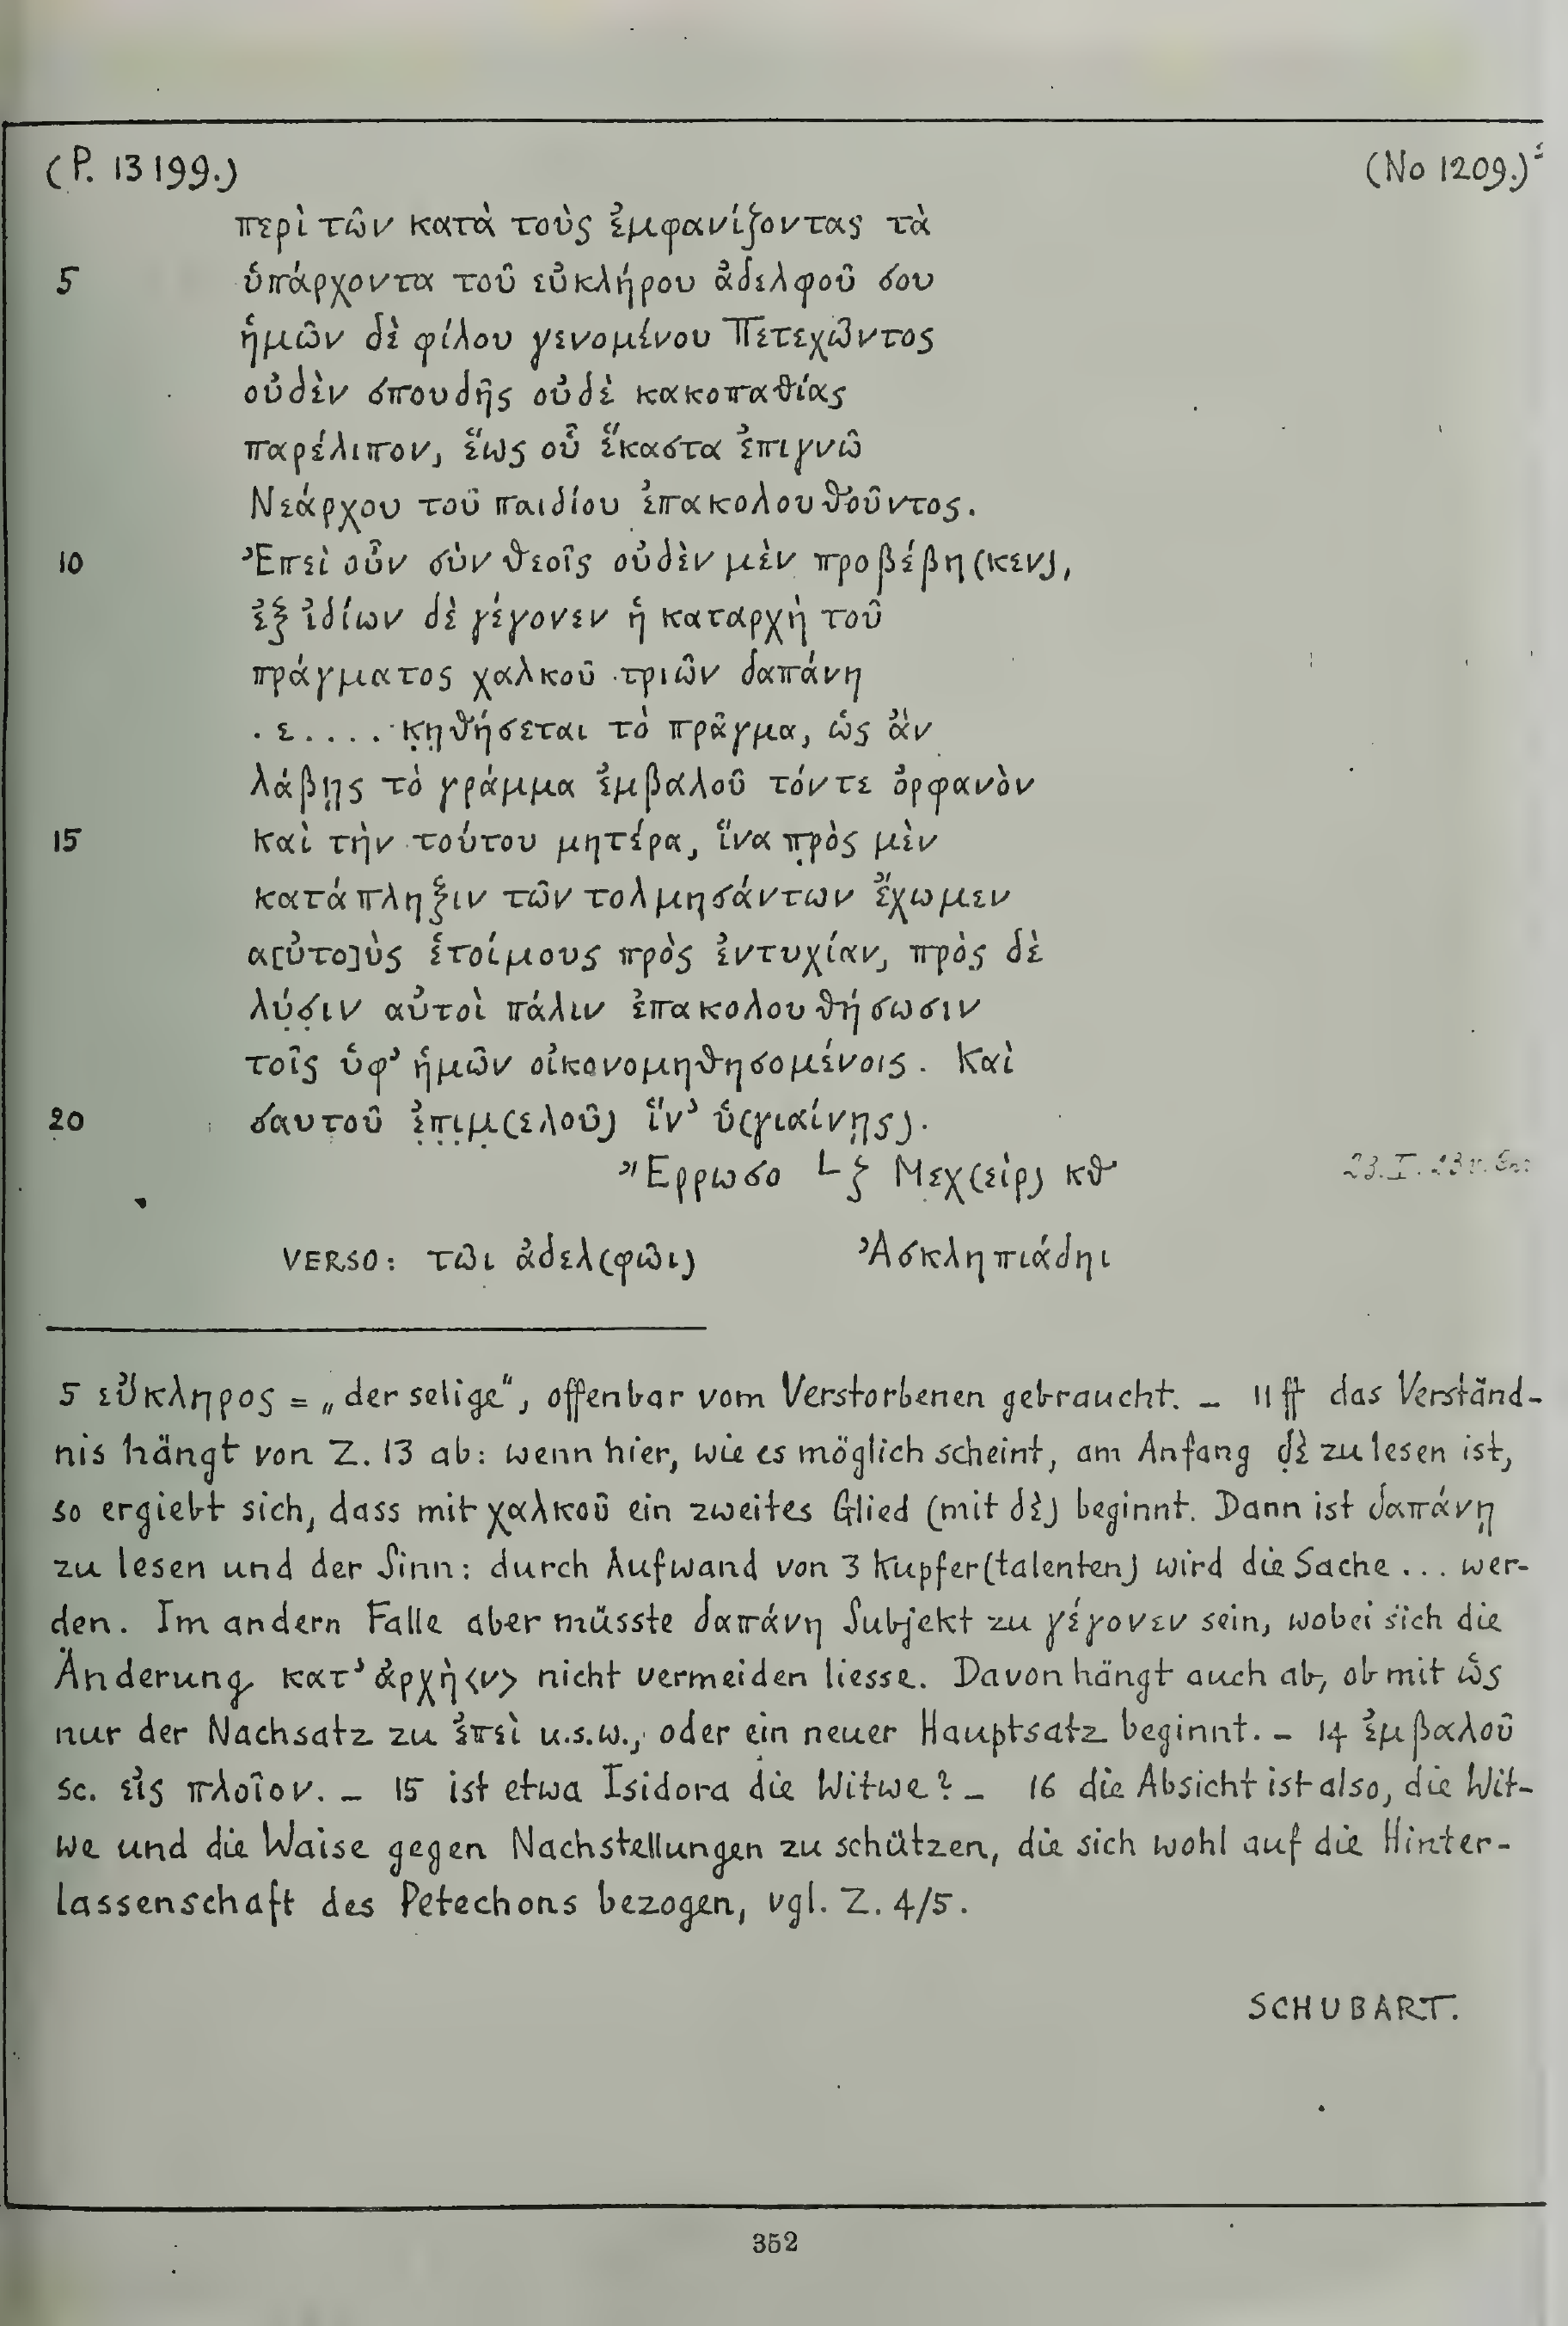 (P. 13199.) (No 1209.)
περὶ τῶν κατὰ τοὺς ἐμφανίζοντας τὰ
5 ὑπάρχοντα τοῦ εὐκλήρου ἀδελφοῦ σου
ἡμῶν δὲ φίλου γενομένου Πετεχῶντος
οὐδὲν σπουδῆς οὐδὲ κακοπαθίας
παρέλιπον, ἕως οὗ ἕκαστα ἐπιγνῶ
Νεάρχου τοῦ παιδίου ἐπακολουθοῦντος.
10 Ἐπεὶ οὖν σὺν θεοῖς οὐδὲν μὲν προβέβη(κεν),
ἐξ ἰδίων δὲ γέγονεν ἡ καταρχὴ τοῦ
πράγματος χαλκοῦ τριῶν δαπάνη
. ε . . . . κ̣η̣θήσεται τὸ πρᾶγμα, ὡς ἂν
λάβη̣ς τὸ γράμμα ἐμβαλοῦ τόν τε ὀρφανὸν
15 καὶ τὴν τούτου μητέρα, ἵνα π̣ρὸς μὲν
κατάπληξιν τῶν τολμησάντων ἔχωμεν
α[ὐτο]ὺς ἑτοίμους πρὸς ἐντυχίαν, πρὸς̣ δὲ
λύ̣σ̣ιν αὐτοὶ πάλιν ἐπακολουθήσωσιν
τοῖς ὑφ’ ἡμῶν οἰκονομηθησομένοις. Καὶ
20 σαυτοῦ ἐ̣π̣ι̣μ̣(ελοῦ) ἵν’ ὑ(γιαίνῃς).
Ἔρρωσο L ζ Με̣χ(εὶρ) κθ
VERSO: τῶι ἀδελ(φῶι) Ἀσκληπιάδηι
5 εὔκληρος = „der selige“, offenbar vom Verstorbenen gebraucht. – 11 ff das Verständ-
nis hängt von Z. 13 ab: wenn hier, wie es möglich scheint, am Anfang δ̣ὲ zu lesen ist,
so ergiebt sich, dass mit χαλκοῦ ein zweites Glied (mit δὲ) beginnt. Dann ist δαπάνῃ
zu lesen und der Sinn: durch Aufwand von 3 Kupfer(talenten) wird die Sache . . . wer-
den. Im andern Falle aber müsste δαπάνη Subjekt zu γέγονεν sein, wobei sich die
Änderung κατ’ ἀρχὴ<ν> nicht vermeiden liesse. Davon hängt auch ab, ob mit ὡς
nur der Nachsatz zu ἐπεὶ u.s.w., oder ein neuer Hauptsatz beginnt. – 14 ἐμβαλοῦ
sc. εἰς πλοῖον. – 15 ist etwa Isidora die Witwe? – 16 die Absicht ist also, die Wit-
we und die Waise gegen Nachstellungen zu schützen, die sich wohl auf die Hinter-
lassenschaft des Petechons bezogen, vgl. Z. 4/5.
SCHUBART.
352